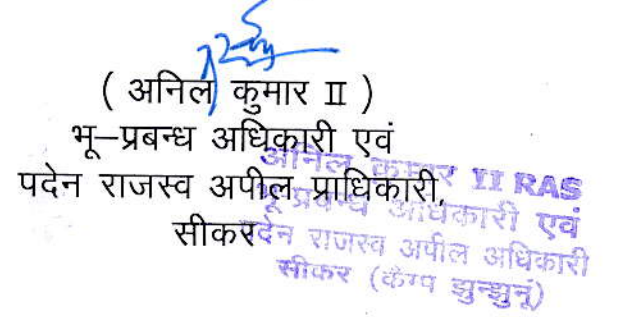 ( अनिल कुमार II )
भू–प्रबन्ध अधिकारी एवं
पदेन राजस्व अपील प्राधिकारी,
सीकर
अनिल कुमार II RAS
भू प्रबन्ध अधिकारी एवं
पदेन राजस्व अपील अधिकारी
सीकर (कैंम्प झुन्झुनूं)